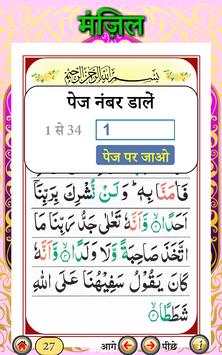 मंज़िल
بِسْمِ اللّٰهِ الرَّحْمٰنِ الرَّحِيْمِ
पेज नंबर डालें
1 से 34
1
पेज पर जाओ
فَاٰمَنَّا بِهٖ ؕ وَلَنْ نُّشْرِكَ بِرَبِّنَاۤ
اَحَدًا ۙ وَّاَنَّهٗ تَعٰلٰى جَدُّ رَبِّنَا مَا
اتَّخَذَ صَاحِبَةً وَّلَا وَلَدًا ۙ وَّاَنَّهٗ
كَانَ يَقُوْلُ سَفِيْهُنَا عَلَى اللّٰهِ
شَطَطًا ۙ
27
आगे
पीछे